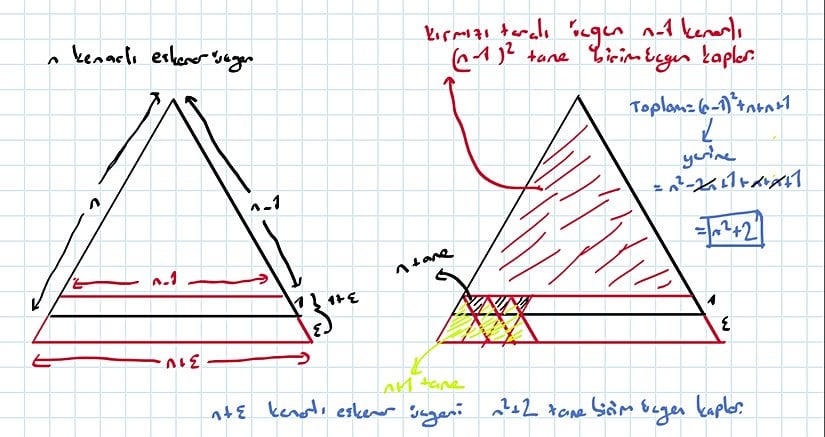 n kenarlı eşkenar üçgen
n
n-1
n-1
1
ε
1+ε
n+ε
kırmızı taralı üçgen n-1 kenarlı
(n-1)² tane birim üçgen kaplar.
Toplam=(n-1)²+n+n+1
yerine
= n²-2n+1+n+n+1
= n²+2
n tane
1
ε
n+1 tane
n+ε kenarlı eşkenar üçgeni n²+2 tane birim üçgen kaplar.